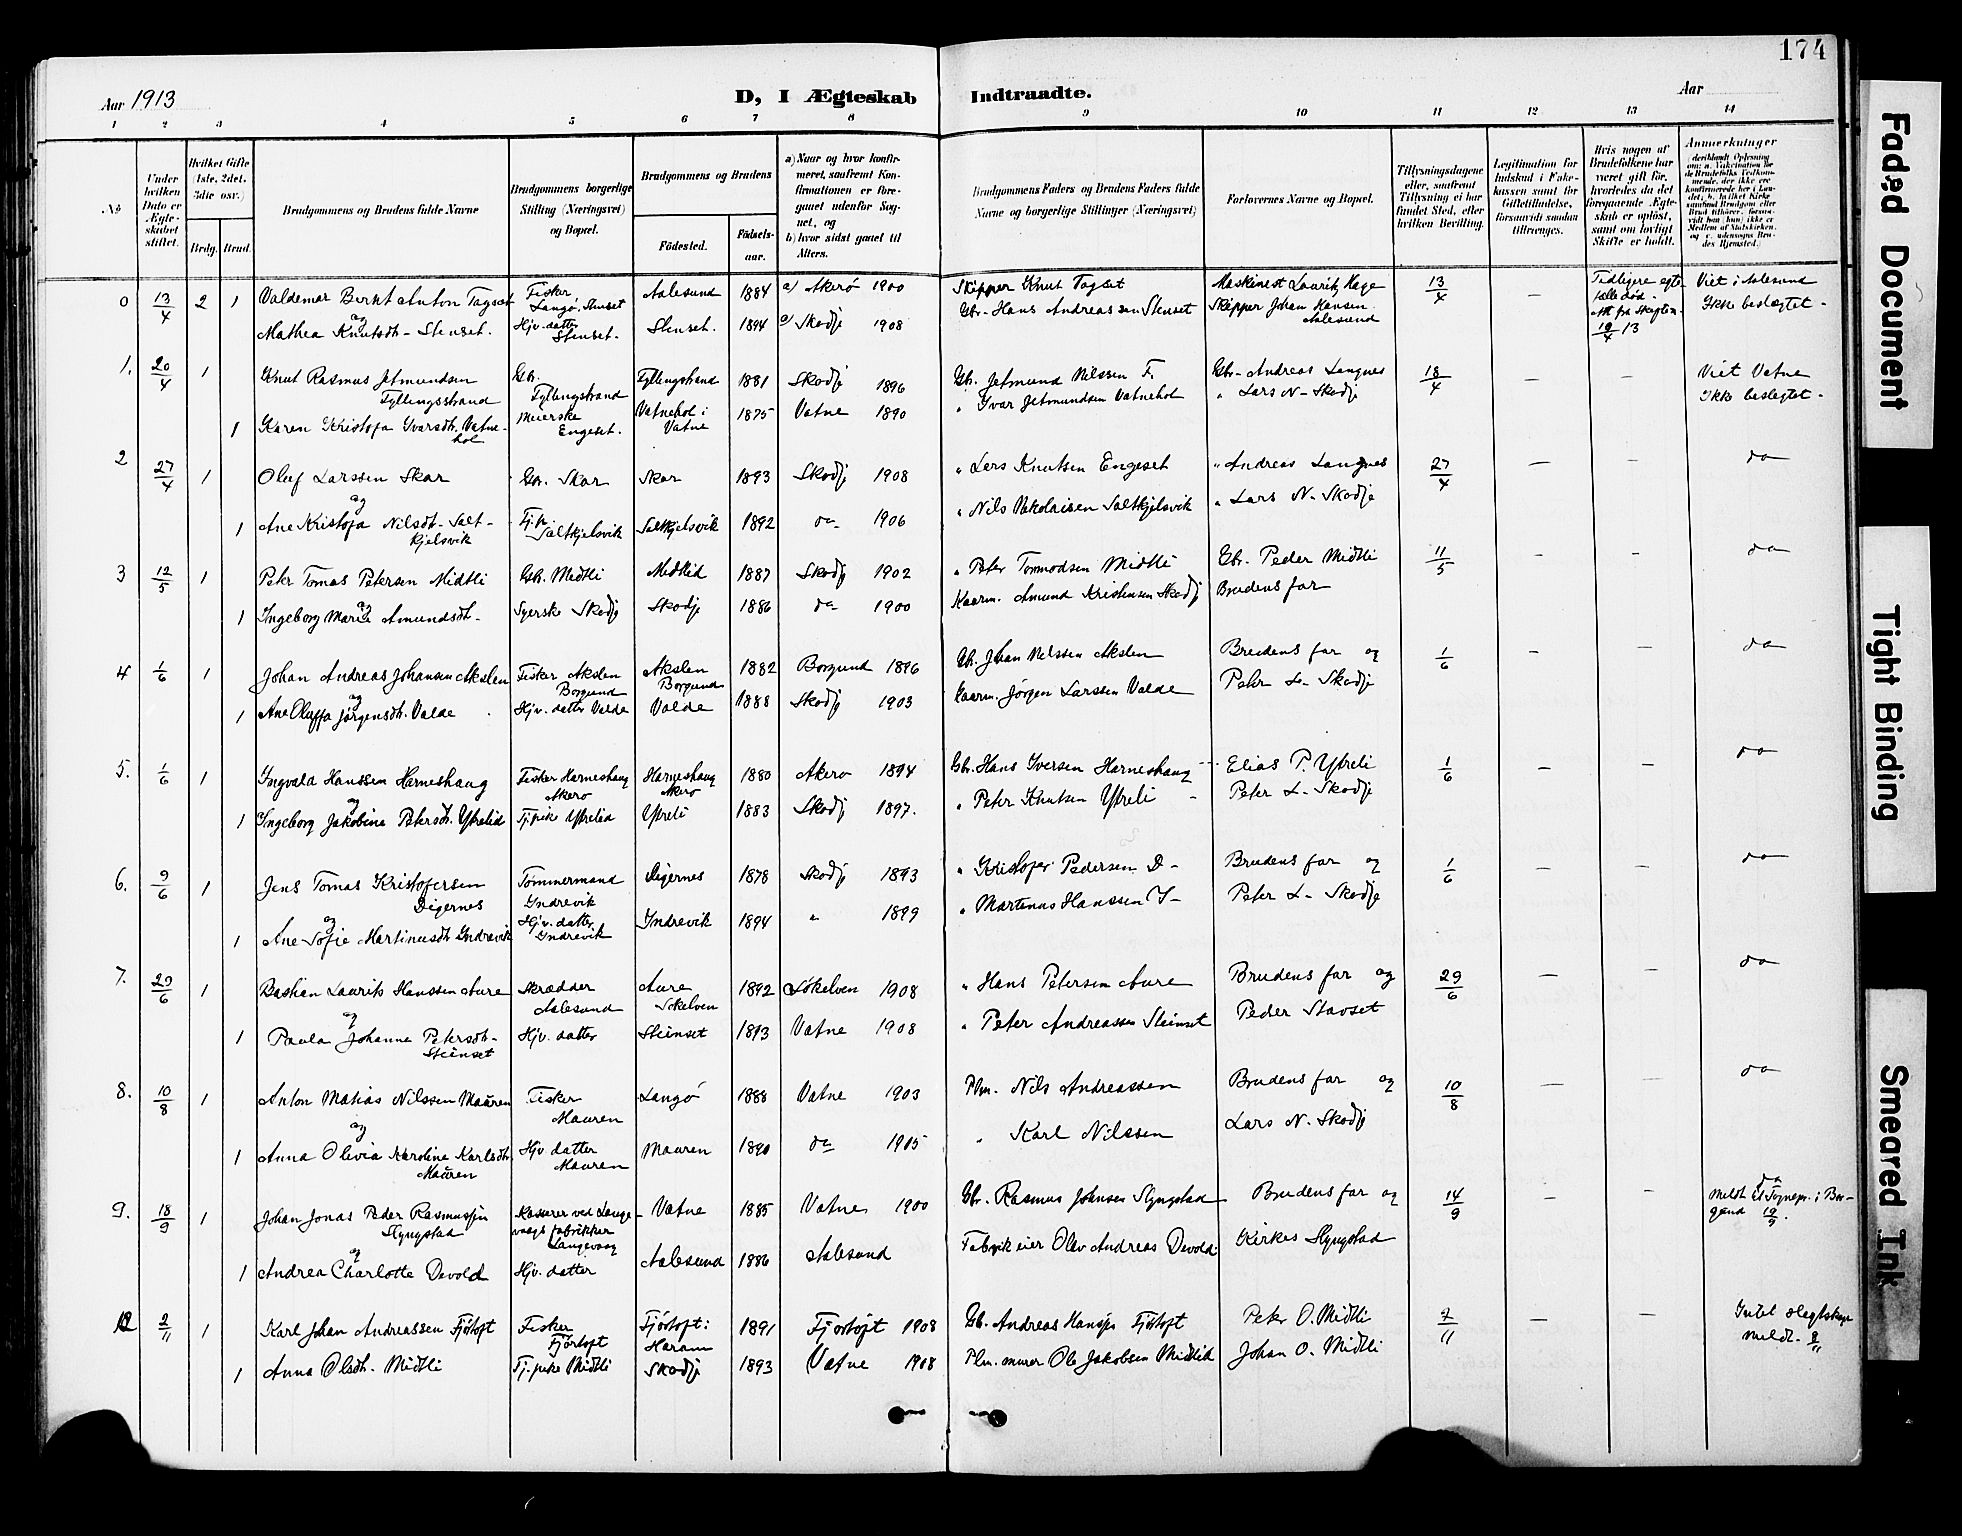 174
Aar 1913
D, I Ægteskab Indtraadte.
Aar
1 2 3 4 5 6 7 8 9 10 11 12 13 14
No.
Under hvilken Dato er Ægteskabet stiftet.
Hvilket Gifte (1ste, 2det, 3die osv.)
Brdg. Brud.
Brudgommens og Brudens fulde Navne
Brudgommens borgerlige Stilling (Næringsvei) og Bopæl.
Brudgommens og Brudens
Födested.
Födsels-aar.
a) Naar og hvor konfirmeret, saafremt Konfirmationen er foregaaet udenfor Sognet, og
b) hvor sidst gaaet til Alters.
Brudgommens Faders og Brudens Faders fulde Navne og borgerlige Stillinger (Næringsvei)
Forlovernes Navne og Bopæl.
Tillysningsdagene eller, saafremt Tillysning ei har fundet Sted, efter hvilken Bevilling.
Legitimation for Indskud i Enkekassen samt for Giftetilladelse, forsaavidt saadan tiltrænges.
Hvis nogen af Brudefolkene har været gift før, hvorledes da det foregaaende Ægteskab er opløst, samt om lovligt Skifte er holdt.
Anmerkninger
0 13/4 2 1 Valdemar Bernt Anton Tagset Fisker Langö, Stenset Aalesund 1884 a) Akerö 1900 Skipper Knut Tagset Maskinist Lauritz Hage 13/4 — Viet i Aalesund
og
Mathea Knutsdt. Stenset. Hjv. datter Stenset. Stenset. 1894 a) Skodje 1908 Gbr. Hans Andreassen Stenset Skipper Johan Hansen Aalesund 19/4 13 Ikke beslegtet.
1. 20/4 1 Knut Rasmus Jetmundsen Tyllingsstrand Gbr. Tyllingstrand Tyllingstrand 1881 Skodje 1896 Gb. Jetmund Nilssen F. Gbr. Andreas Langnes 18/4 — — Viet Vatne
1 Karen Kristofa Ivarsdt. Vatnehol Meierske Engeset. Vatnehol i Vatne 1875 Vatne 1890 " Ivar Jetmundsen Vatnehol " Lars N. Skodje Ikke beslegtet.
2 27/4 1 Oluf Larssen Skar Gbr. Skar Skar 1893 Skodje 1908 " Lars Knutsen Engeset " Andreas Langnes 27/4 — — do
og
1 Ane Kristofa Nilsdt. Saltkjelsvik Fjp. Saltkjelsvik Saltkjelsvik 1892 do 1906 " Nils Nikolaisen Saltkjelsvik " Lars N. Skodje
3 12/5 1 Peter Tomas Petersen Midtli Gbr. Midtli Midtlid 1887 Skodje 1902 " Peter Tormodsen Midtli Gbr. Peder Midtli 11/5 - - do
og
1 Ingeborg Marie Amundsdt. Syerske Skodje Skodje 1886 do 1900 Kaarm. Amund Kristensen Skodj Brudens far
4 1/6 1 Johan Andreas Johansen Akslen Fisker Akslen Borgund Akslen Borgund 1882 Borgund 1896 Gb. Johan Nilssen Akslen Brudens far og 1/6 — — do
og
1 Ane Oluffa Jörgensdt. Valde Hjv. datter Valde Valde 1888 Skodj 1903 Kaarm. Jörgen Larssen Valde Peter L. Skodje
5. 1/6 1 Ingvald Hanssen Harneshaug Fisker Harneshaug Akerö Harneshaug Akerö 1880 Akero 1894 Gbr. Hans Iversen Harneshaug Elias P. Ytreli 1/6 — — do
og
1 Ingeborg Jakobine Petersdt. Ytrelid Tj.pike Ytrelid Ytreli 1883 Skodj 1897. " Peter Knutsen Ytreli Peter L. Skodje
6. 9/6 1 Jens Tomas Kristofersen Digernes Tömmermand Indrevik Digernes 1878 Skodj 1893 " Kristofer Pedersen D- Brudens far og 1/6 — — do
og
1 Ane Sofie Martinusdt Indrevik Hjv. datter Indrevik Indrevik 1894 " 1899 " Martinus Hanssen I- Peter L. Skodje
7. 29/6 1 Bastian Laurits Hanssen Aure Skrædder Aalesund Aure Sökelven 1892 Sökelven 1908 " Hans Petersen Aure Brudens far og 29/6 — — do
og
1 Paula Johanne Petersdt. Steinset Hjv. datter Steinset 1893 Vatne 1908 " Peter Andreassen Steinset Peder Stavset
8. 10/8 1 Anton Matias Nilssen Mauren Fisker Mauren Langö 1888 Vatne 1903 Plm. Nils Andreassen Brudens far og 10/8 — — do
og
1 Anna Olivia Karoline Karlsdt. Mauren Hjv datter Mauren Mauren 1890 do 1905 " Karl Nilssen Lars N. Skodje
9. 18/9 1 Johan Jonas Peder Rasmussen Slyngstad Kasserer ved Langevaags fabrikker Langevaag Vatne 1885 Vatne 1900 Gbr. Rasmus Johnsen Slyngstad Brudens far og 14/9 — — do
Meldt til Sognepr. i Borgund 19/9.
og
1 Andrea Charlotte Devold Hjv. datter Aalesund 1886 Aalesund Fabrikeier Olev Andreas Devold Kirkes. Slyngstad
2/11 1 Karl Johan Andreassen Fjörtoft Fisker Fjörtoft Fjörtoft i Haram 1891 Fjörtoft 1908 Gb. Andreas Hansen Fjörtoft Peter O. Midtli 2/11 — — Intet slegtskap
1 Anna Olsdt. Midtli Tj.pike Midtli Skodje 1893 Vatne 1908 Plm. murer Ole Jakobsen Midtlid Johan O. Midtli Meldt.
Faded Document
Tight Binding
Smeared Ink